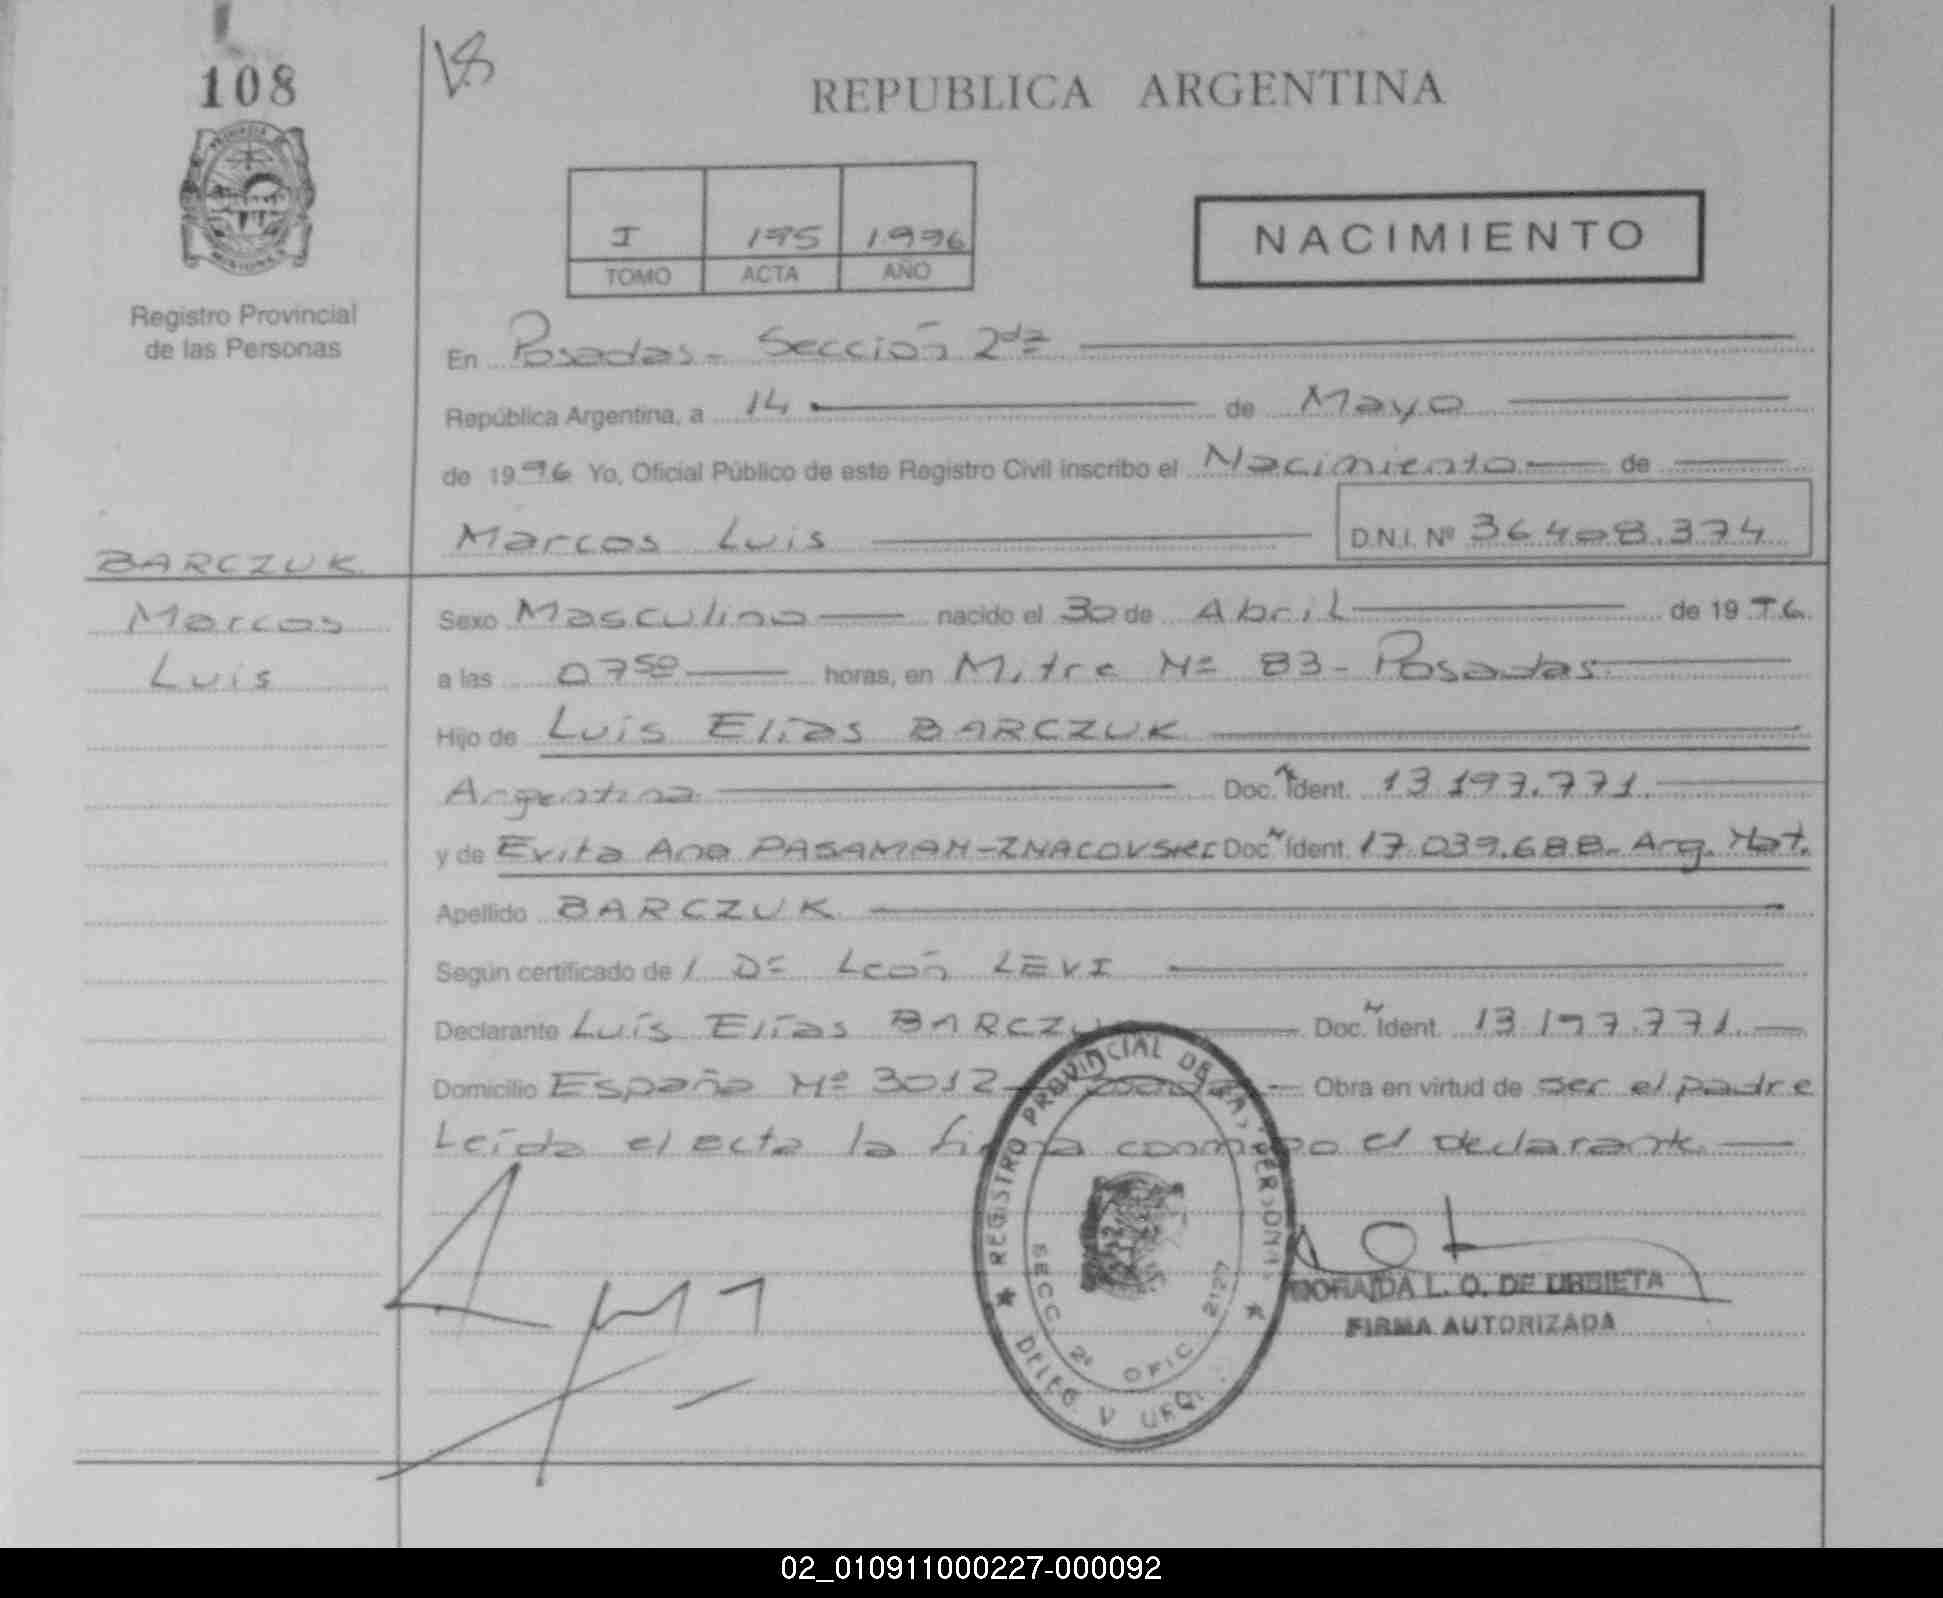 108
REPUBLICA ARGENTINA
I 195 1996
TOMO ACTA AÑO
NACIMIENTO
Registro Provincial
de las Personas
En Posadas - Sección 2da
República Argentina, a 14 de Mayo
de 1996 Yo, Oficial Público de este Registro Civil inscribo el Nacimiento de
Marcos Luis D.N.I. Nº 36.408.374
BARCZUK
Marcos
Luis
Sexo Masculino nacido el 30 de Abril de 1996
a las 07 50 horas, en Mitre Nº 83 - Posadas
Hijo de Luis Elías BARCZUK
Argentina Doc. Ident. 13.197.771
y de Evita Ana Doc. Ident. 17.039.688 - Arg. Nat.
Apellido BARCZUK
Según certificado de / Dr León LEVI
Declarante Luís Elías BARCZUK Doc. Ident. 13.197.771
Domicilio España Nº 3012 - Obra en virtud de ser el padre
Leída el acta la firma conmigo el declarante
REGISTRO PROVINCIAL DE LAS PERSONAS
SECC 2ª OFIC 2127
DELEG V URQ
L. O. DE URBIETA
FIRMA AUTORIZADA
02_010911000227-000092